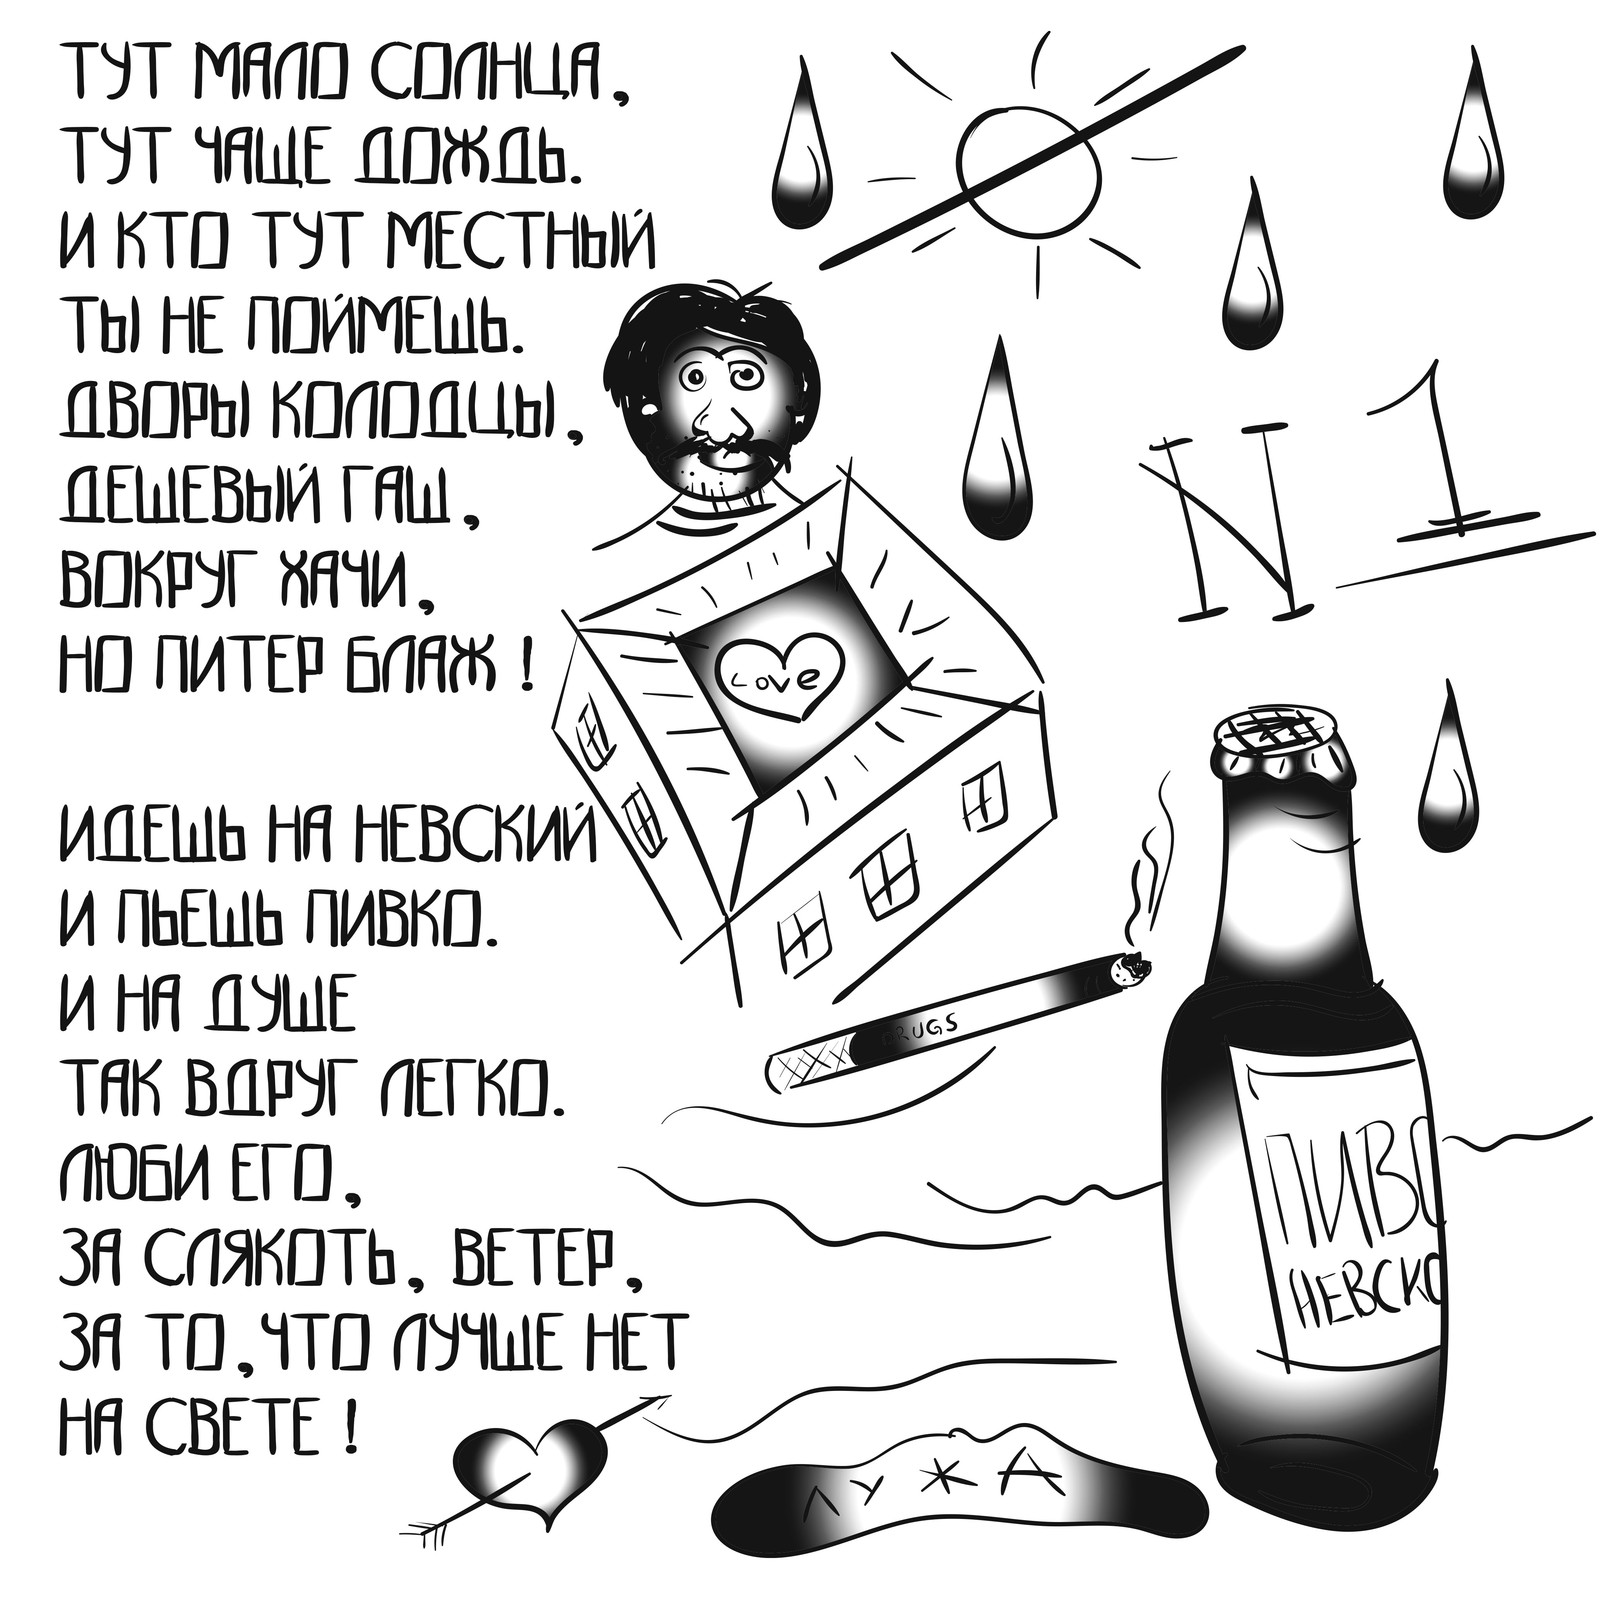 ТУТ МАЛО СОЛНЦА,
ТУТ ЧАЩЕ ДОЖДЬ.
И КТО ТУТ МЕСТНЫЙ
ТЫ НЕ ПОЙМЕШЬ.
ДВОРЫ КОЛОДЦЫ,
ДЕШЕВЫЙ ГАШ,
ВОКРУГ ХАЧИ,
НО ПИТЕР БЛАЖ !
ИДЕШЬ НА НЕВСКИЙ
И ПЬЕШЬ ПИВКО.
И НА ДУШЕ
ТАК ВДРУГ ЛЕГКО.
ЛЮБИ ЕГО,
ЗА СЛЯКОТЬ, ВЕТЕР,
ЗА ТО, ЧТО ЛУЧШЕ НЕТ
НА СВЕТЕ !
N 1
Love
DRUGS
ПИВО
НЕВСКО
ЛУЖА